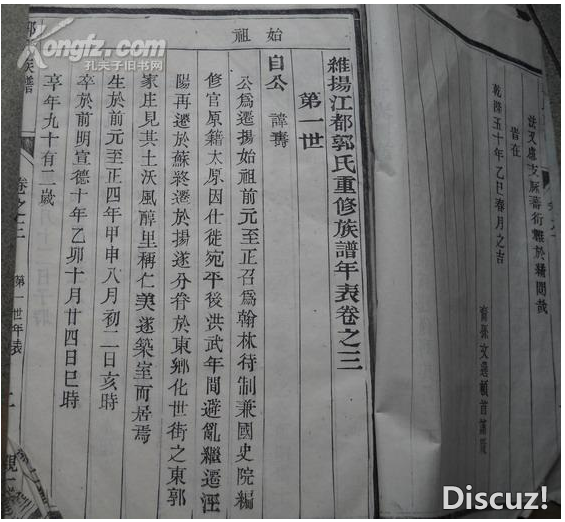 法又虑支脉蕃衍难於稽問哉
皆在
乾隆五十年乙巳春月之吉
裔孫文選頓首謹
維揚江都郭氏重修族譜年表卷之三
第一世
始祖
自公 諱壽
公爲遷揚始祖前元至正召爲翰林待制兼國史院編
修官原籍太原因仕徙宛平後洪武年間避亂繼遷涇
陽再遷於蘇終遷於揚遂分脊於東鄉化世街之東郭
家庄見其土沃風醇里稱仁美遂築室而居焉
生於前元至正四年甲申八月初二日亥時
卒於前明宣德十年乙卯十月廿四日巳時
享年九十有二歲
族譜
卷之三
第一世年表
二
Kongfz.com
孔夫子旧书网
Discuz!